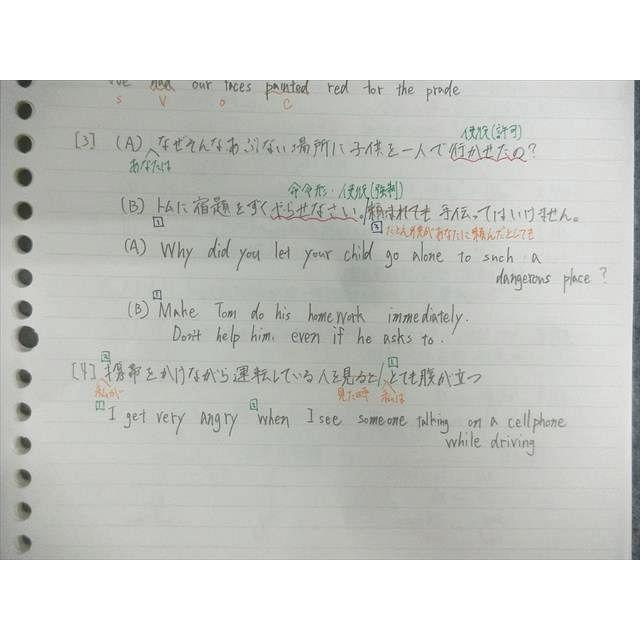 our faces painted red for the prade
S V O C
使役(許可)
[3] (A) なぜそんなあぶない場所に子供を一人で行かせたの?
あなたは
命令形・使役(強制)
(B) トムに宿題をすぐやらせなさい。/頼まれても手伝ってはいけません。
1 2 たとえ彼があなたに頼んだとしても
(A) Why did you let your child go alone to such a
dangerous place?
1
(B) Make Tom do his homework immediately.
Don't help him, even if he asks to.
2 1
[4] 携帯をかけながら運転している人を見ると/とても腹が立つ
私が 見た時 私は
1 I get very angry 2 when I see someone talking on a cellphone
while driving